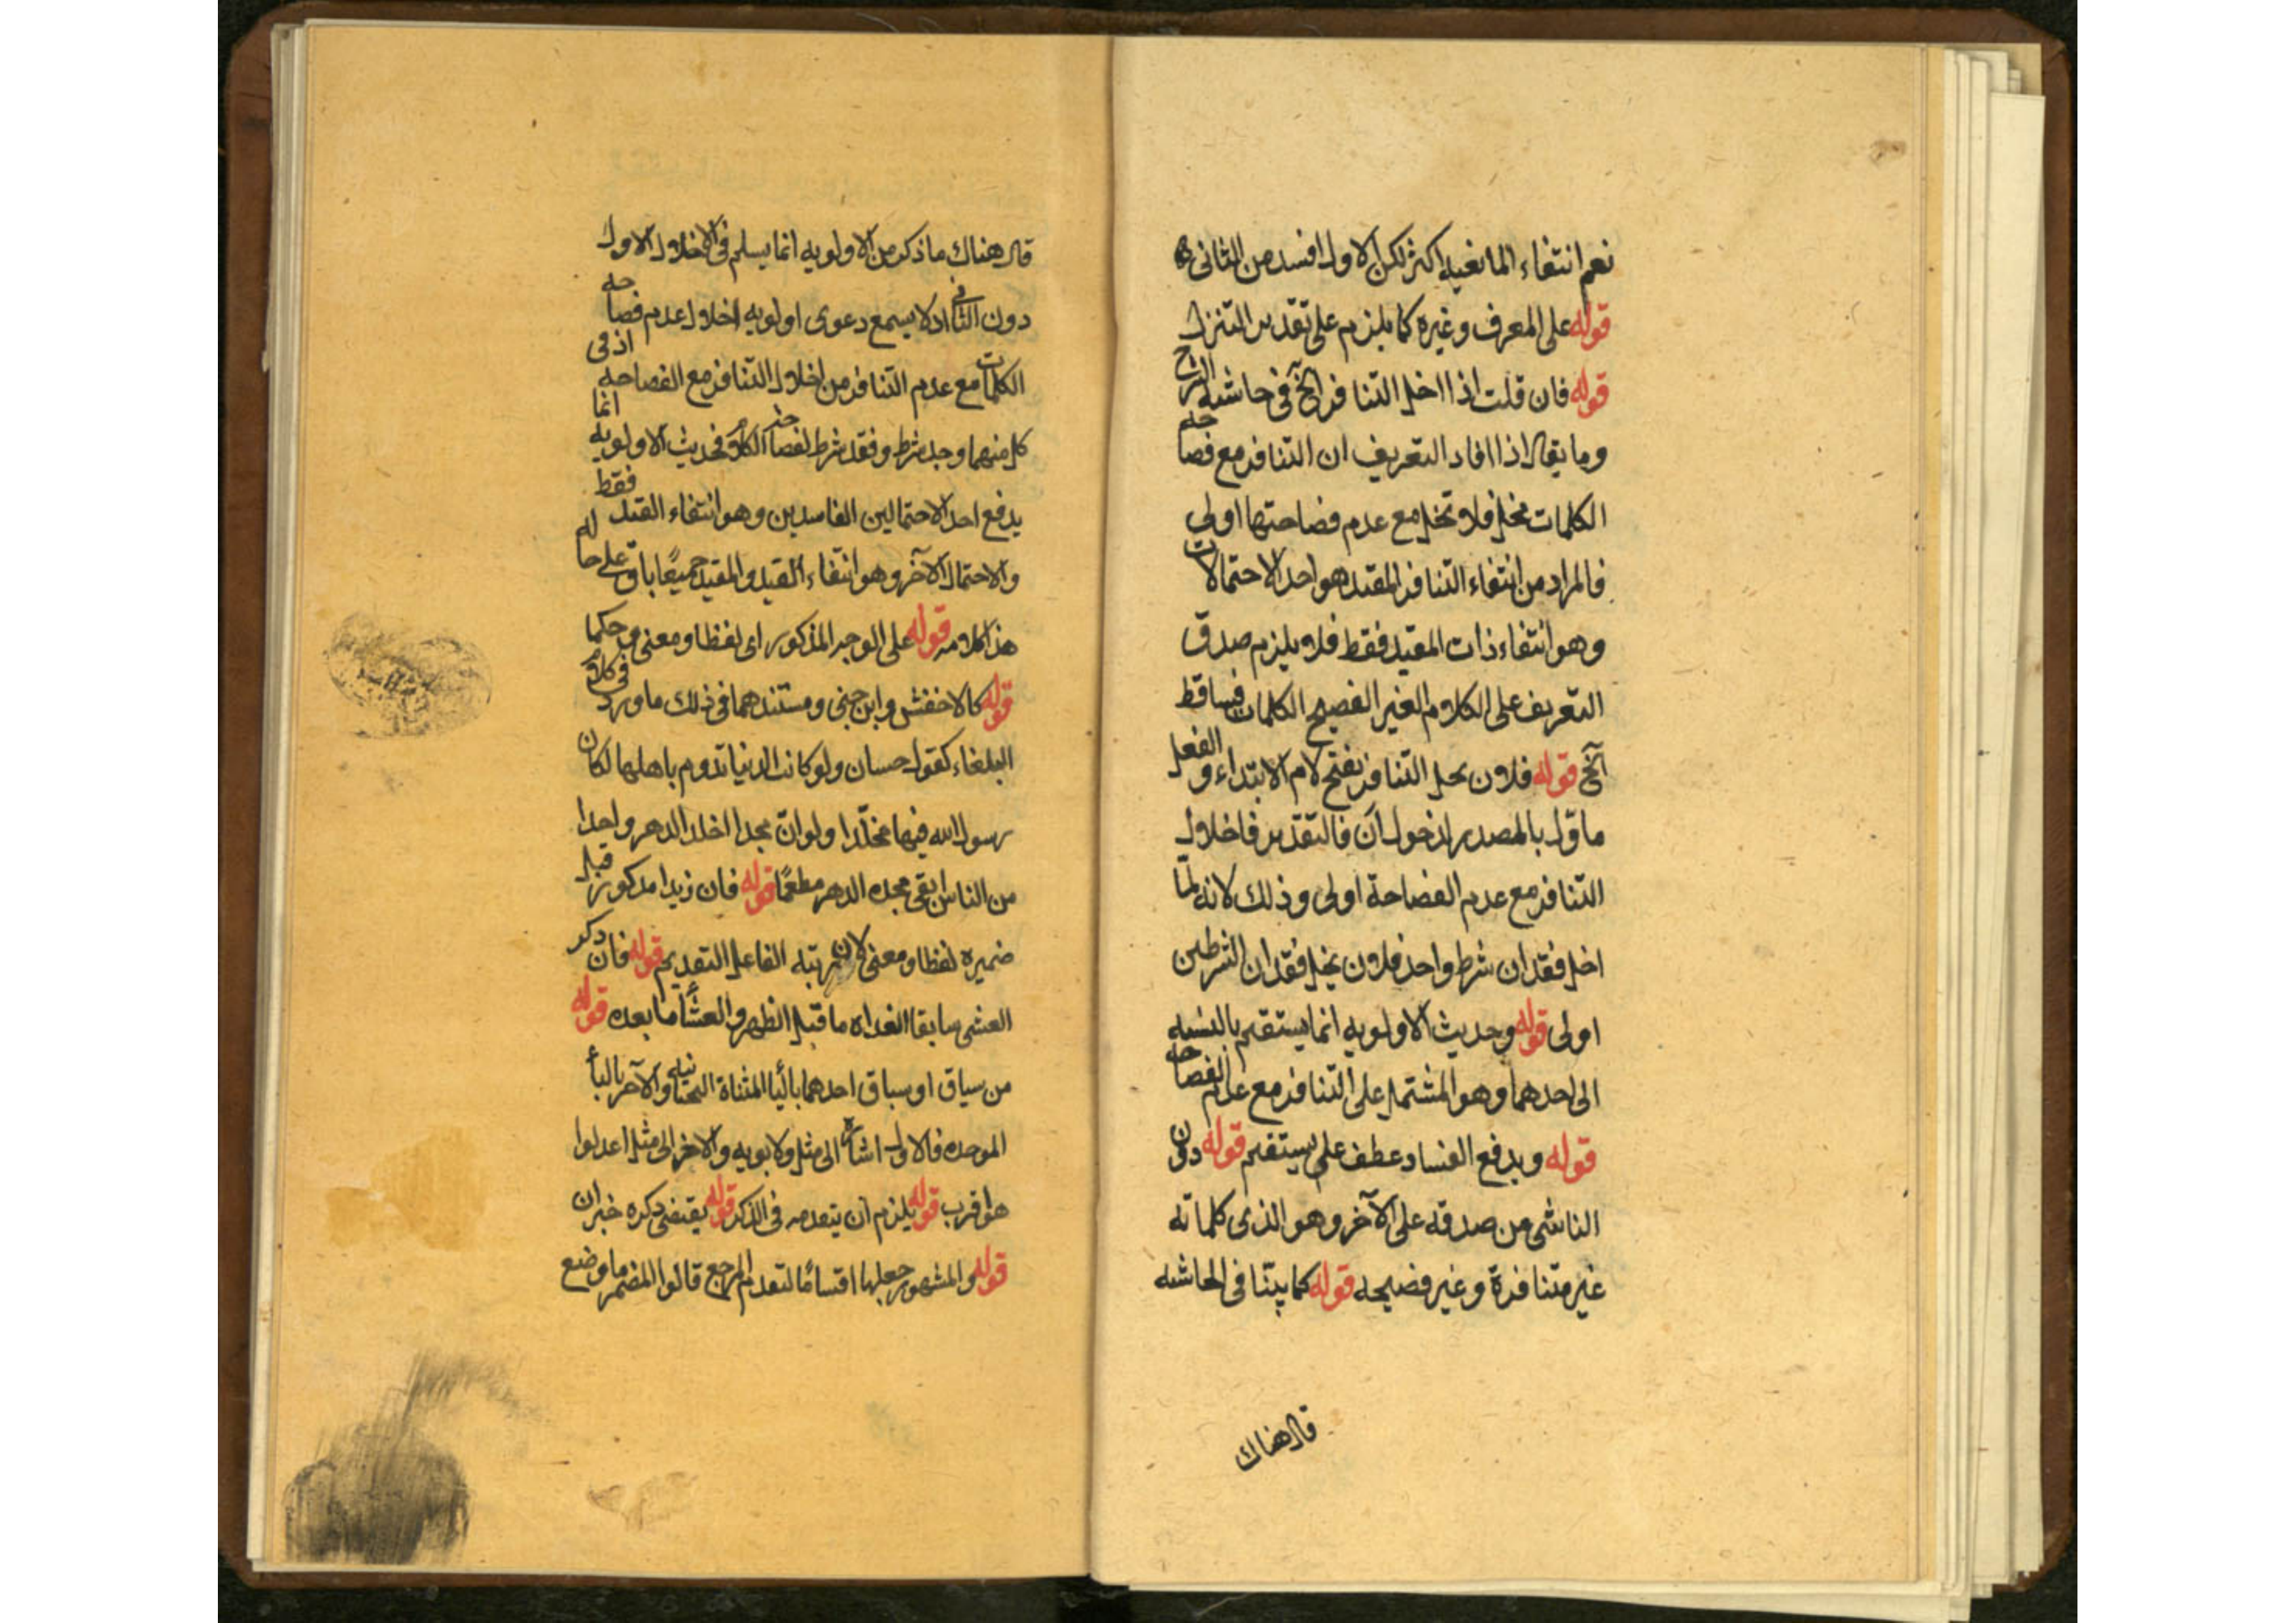 نعم انتفاء المانعيه اكثر لكن الاول افسد من الثاني
قوله على المعرف وغيره كما يلزم على تقدير التنزل
قوله فان قلت اذا اخل التنافر الخ في حاشية
وما يقال اذا افاد التعريف ان التنافر مع فصاحه
الكلمات مخل فلاو تخل مع عدم فصاحتها اولى
فالمراد من انتفاء التنافر المقيد هو احد الاحتمالات
وهو انتفاء ذات المقيد فقط فلا يلزم صدق
التعريف على الكلام الغير الفصيح الكلمات فساقط
الخ قوله فلاون يحل التنافر بفتح لام الابتداء والفعل
ماوّل بالمصدر لدخول ان فالتقدير فاخلال
التنافر مع عدم الفصاحة اولى وذلك لانه لمّا
اخل فقدان شرط واحد فلاون يخل فقدان الشرطين
اولى قوله وحديث الاولويه انما يستقيم بالنسبه
الى احدهما وهو المشتمل على التنافر مع عدم الفصاحه
قوله ويدفع الفساد عطف على يستقيم قوله دون
الناشى من صدقه على الآخر وهو الذى كلماته
غير متنافرة وغير فصيحه قوله كما بيّنا في الحاشيه
قال هناك
قال هناك ما ذكر من الاولويه انما يسلم فى الاخلال الاول
دون الثانى اذ لا يسمع دعوى اولويه اخلال عدم فصاحه
الكلمات مع عدم التنافر من اخلال التنافر مع الفصاحه اذ فى
كل منهما وجد شرط وفقد شرط لفصاحه الكلام فحديث الاولويه انما
يدفع احد الاحتمالين الفاسدين وهو انتفاء القيد فقط
والاحتمال الآخر وهو انتفاء القيد والمقيد جميعًا باق على حاله
هذا كلامه قوله على الوجه المذكور اى لفظا ومعنى وحكما
قوله كالاخفش وابن جنى ومستندهما فى ذلك ما ورد فى كلام
البلغاء كقول حسان ولو كانت الدنيا تدوم باهلها لكان
رسول الله فيها مخلّدا ولو انّ مجدا اخلد الدهر واحدا
من الناس ابقى مجده الدهر مطعمًا قوله فان زيدا مذكور قبل
ضميره لفظا ومعنى لان رتبه الفاعل التقديم قوله فان ذكر
العشى سابقا الغداه ما قبل الظهر والعشاء ما بعده قوله
من سياق او سباق احدهما باليا المثناة التحتانيه والآخر بالبا
الموحده فالاول اشاره الى مثل ولابويه والاخر الى مثل اعدلوا
هو اقرب قوله يلزم ان يتقدمه فى الذكر قوله يقتضى ذكره خبر ان
قوله والمشهور جعلها اقسامًا لتقدم المرجع قالوا المضمر ما وضع